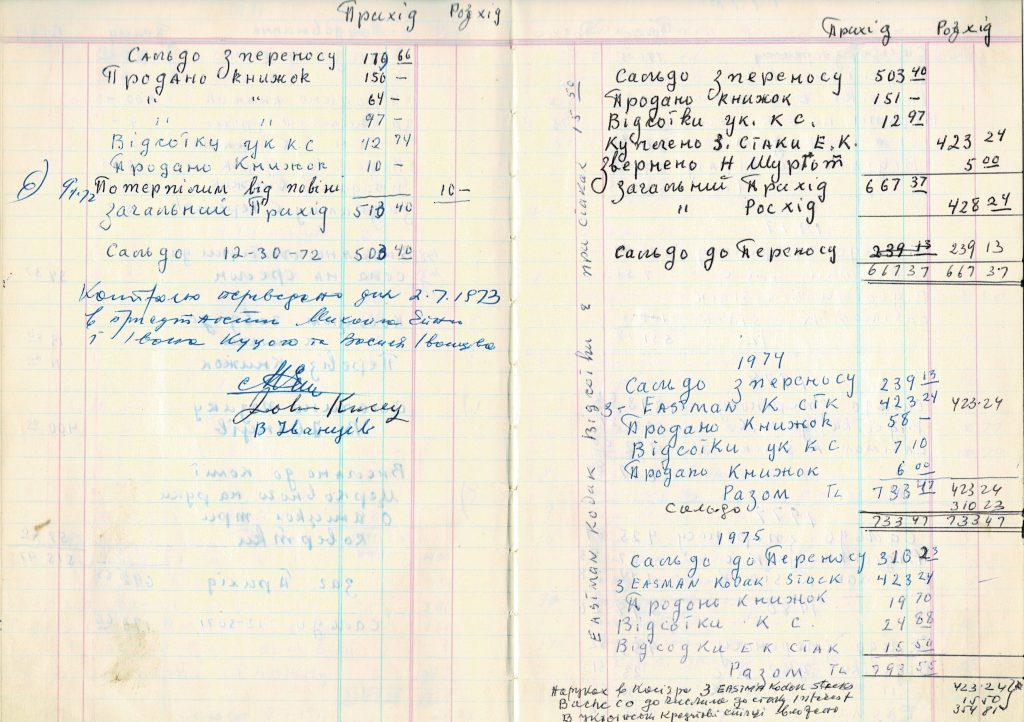 Прихід Розхід
Сальдо з переносу 179 66
Продано книжок 150 –
" " 64 –
" " 97 –
Відсотку ук к с 12 74
Продано Книжок 10 –
6) Потерпілим від повіни 10 –
Загальний Прихід 513 40
Сальдо 12-30-72 503 40
Контролю переведено дня 2.7.1973
в присутности Михайла
і Івана Куцого та Василя Іванцева
В Іванців
Прихід Розхід
Сальдо з переносу 503 40
Продано книжок 151 –
Відсотки ук. к с. 12 97
Куплено 3. стаки Е.К. 423 24
Звернено Н 5 00
Загальний Прихід 667 37
" Росхід 428 24
Сальдо до Переносу 239 13 239 13
667 37 667 37
1974
Сальдо з переносу 239 13
3- EASTMAN K СТК 423 24 423.24
Продано Книжок 58 –
Відсотки ук к с 7 10
Продано Книжок 6 00
Разом Тц 733 47 423 24
Сальдо 310 23
733 47 733 47
1975
Сальдо до Переносу 310 23
3 EASMAN Kodak Stock 423 24 –
Продонь книжок 19 70
Відсотки К С. 24 88
Відсодки Е К СТАК 15 50
Разом Тц 793 55
в Касієра 3 EASTMAN Kodak Stocks 423.24
до числила Interest 15 50
В Кредитові 354 81
EASTMAN Kodak Відсотки Е при стаках 15-50